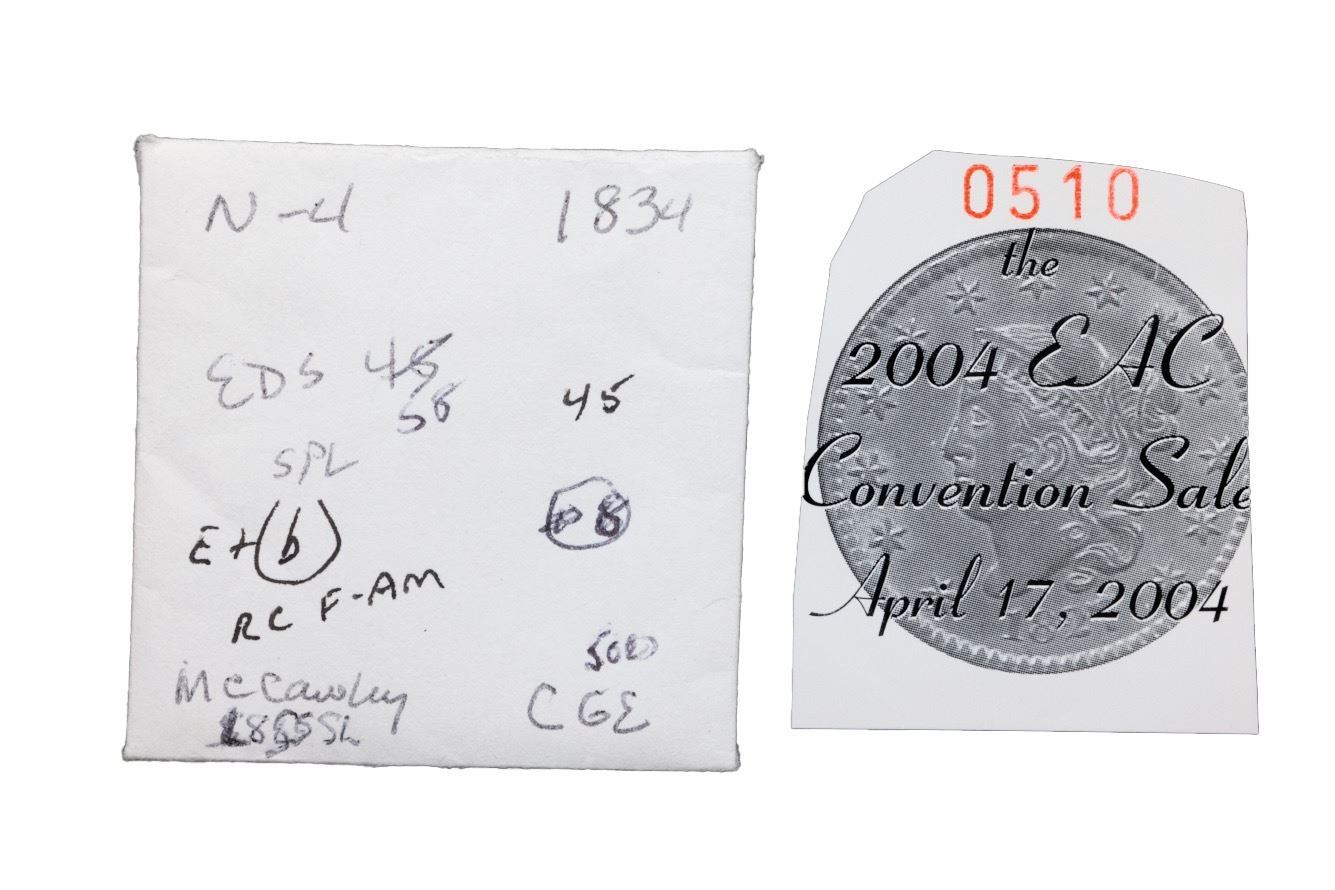 N-4 1834
EDS 45 45
58
SPL
E+(b)
RC F-AM
500
McCawley CGE
0510
the
2004 EAC
Convention Sale
April 17, 2004